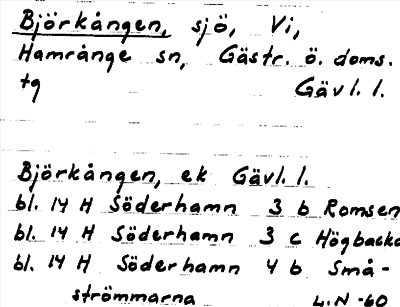 Björkången, sjö, Vi,
Hamrånge sn, Gästr. ö. doms.
tg Gävl. l.
Björkången, ek Gävl. l.
bl. 14 H Söderhamn 3 b Romsen
bl. 14 H Söderhamn 3 c Högbacka
bl. 14 H Söderhamn 4 b Små-
strömmarna L.N -60